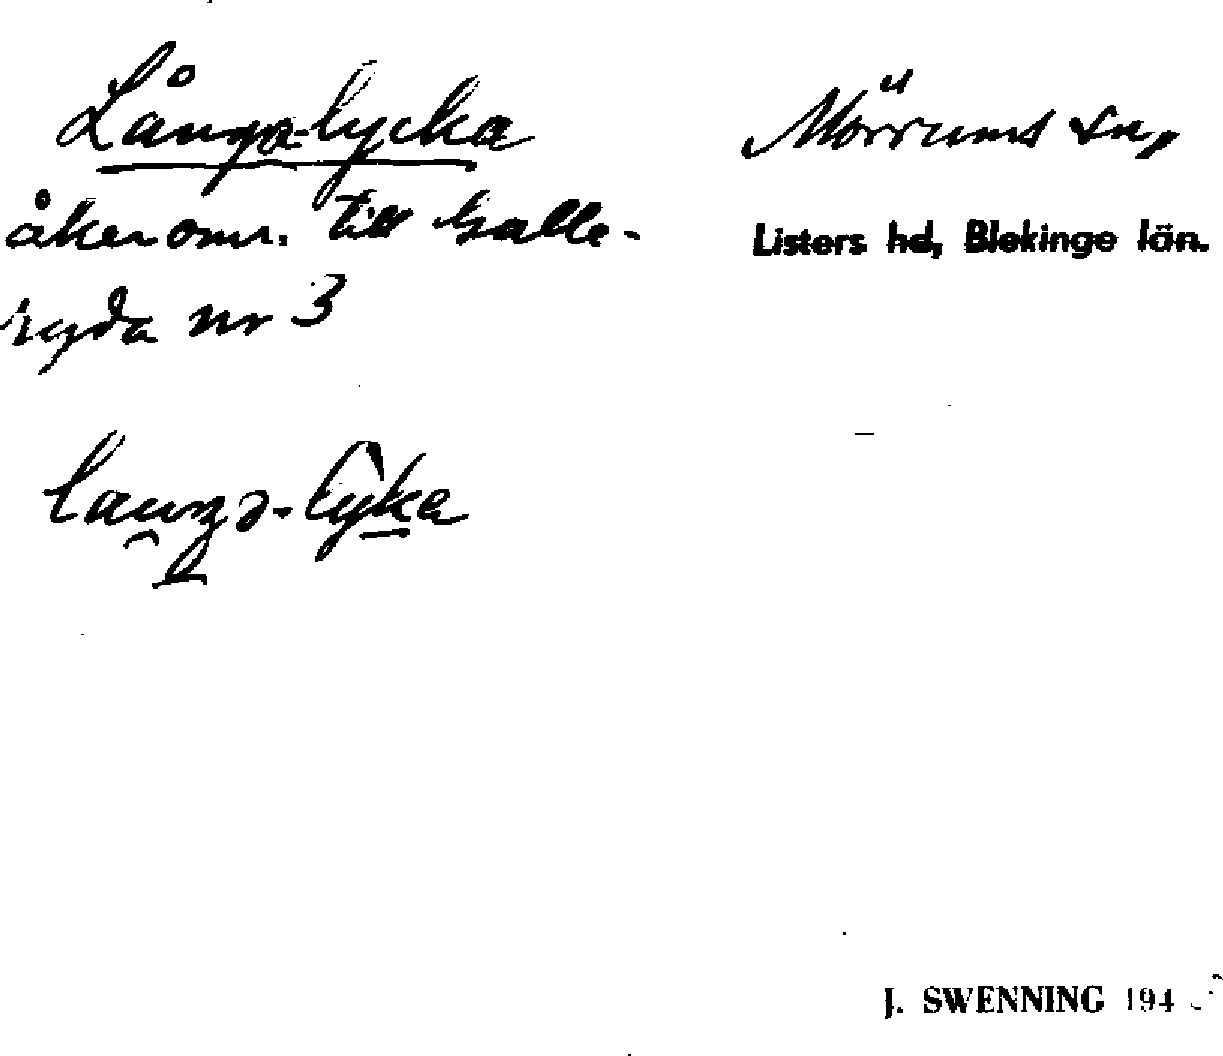 Långa-lycka
Mörrums sn,
åkerom. till Galle-
Listers hd, Blekinge län.
ryda nr 3
J. SWENNING 194